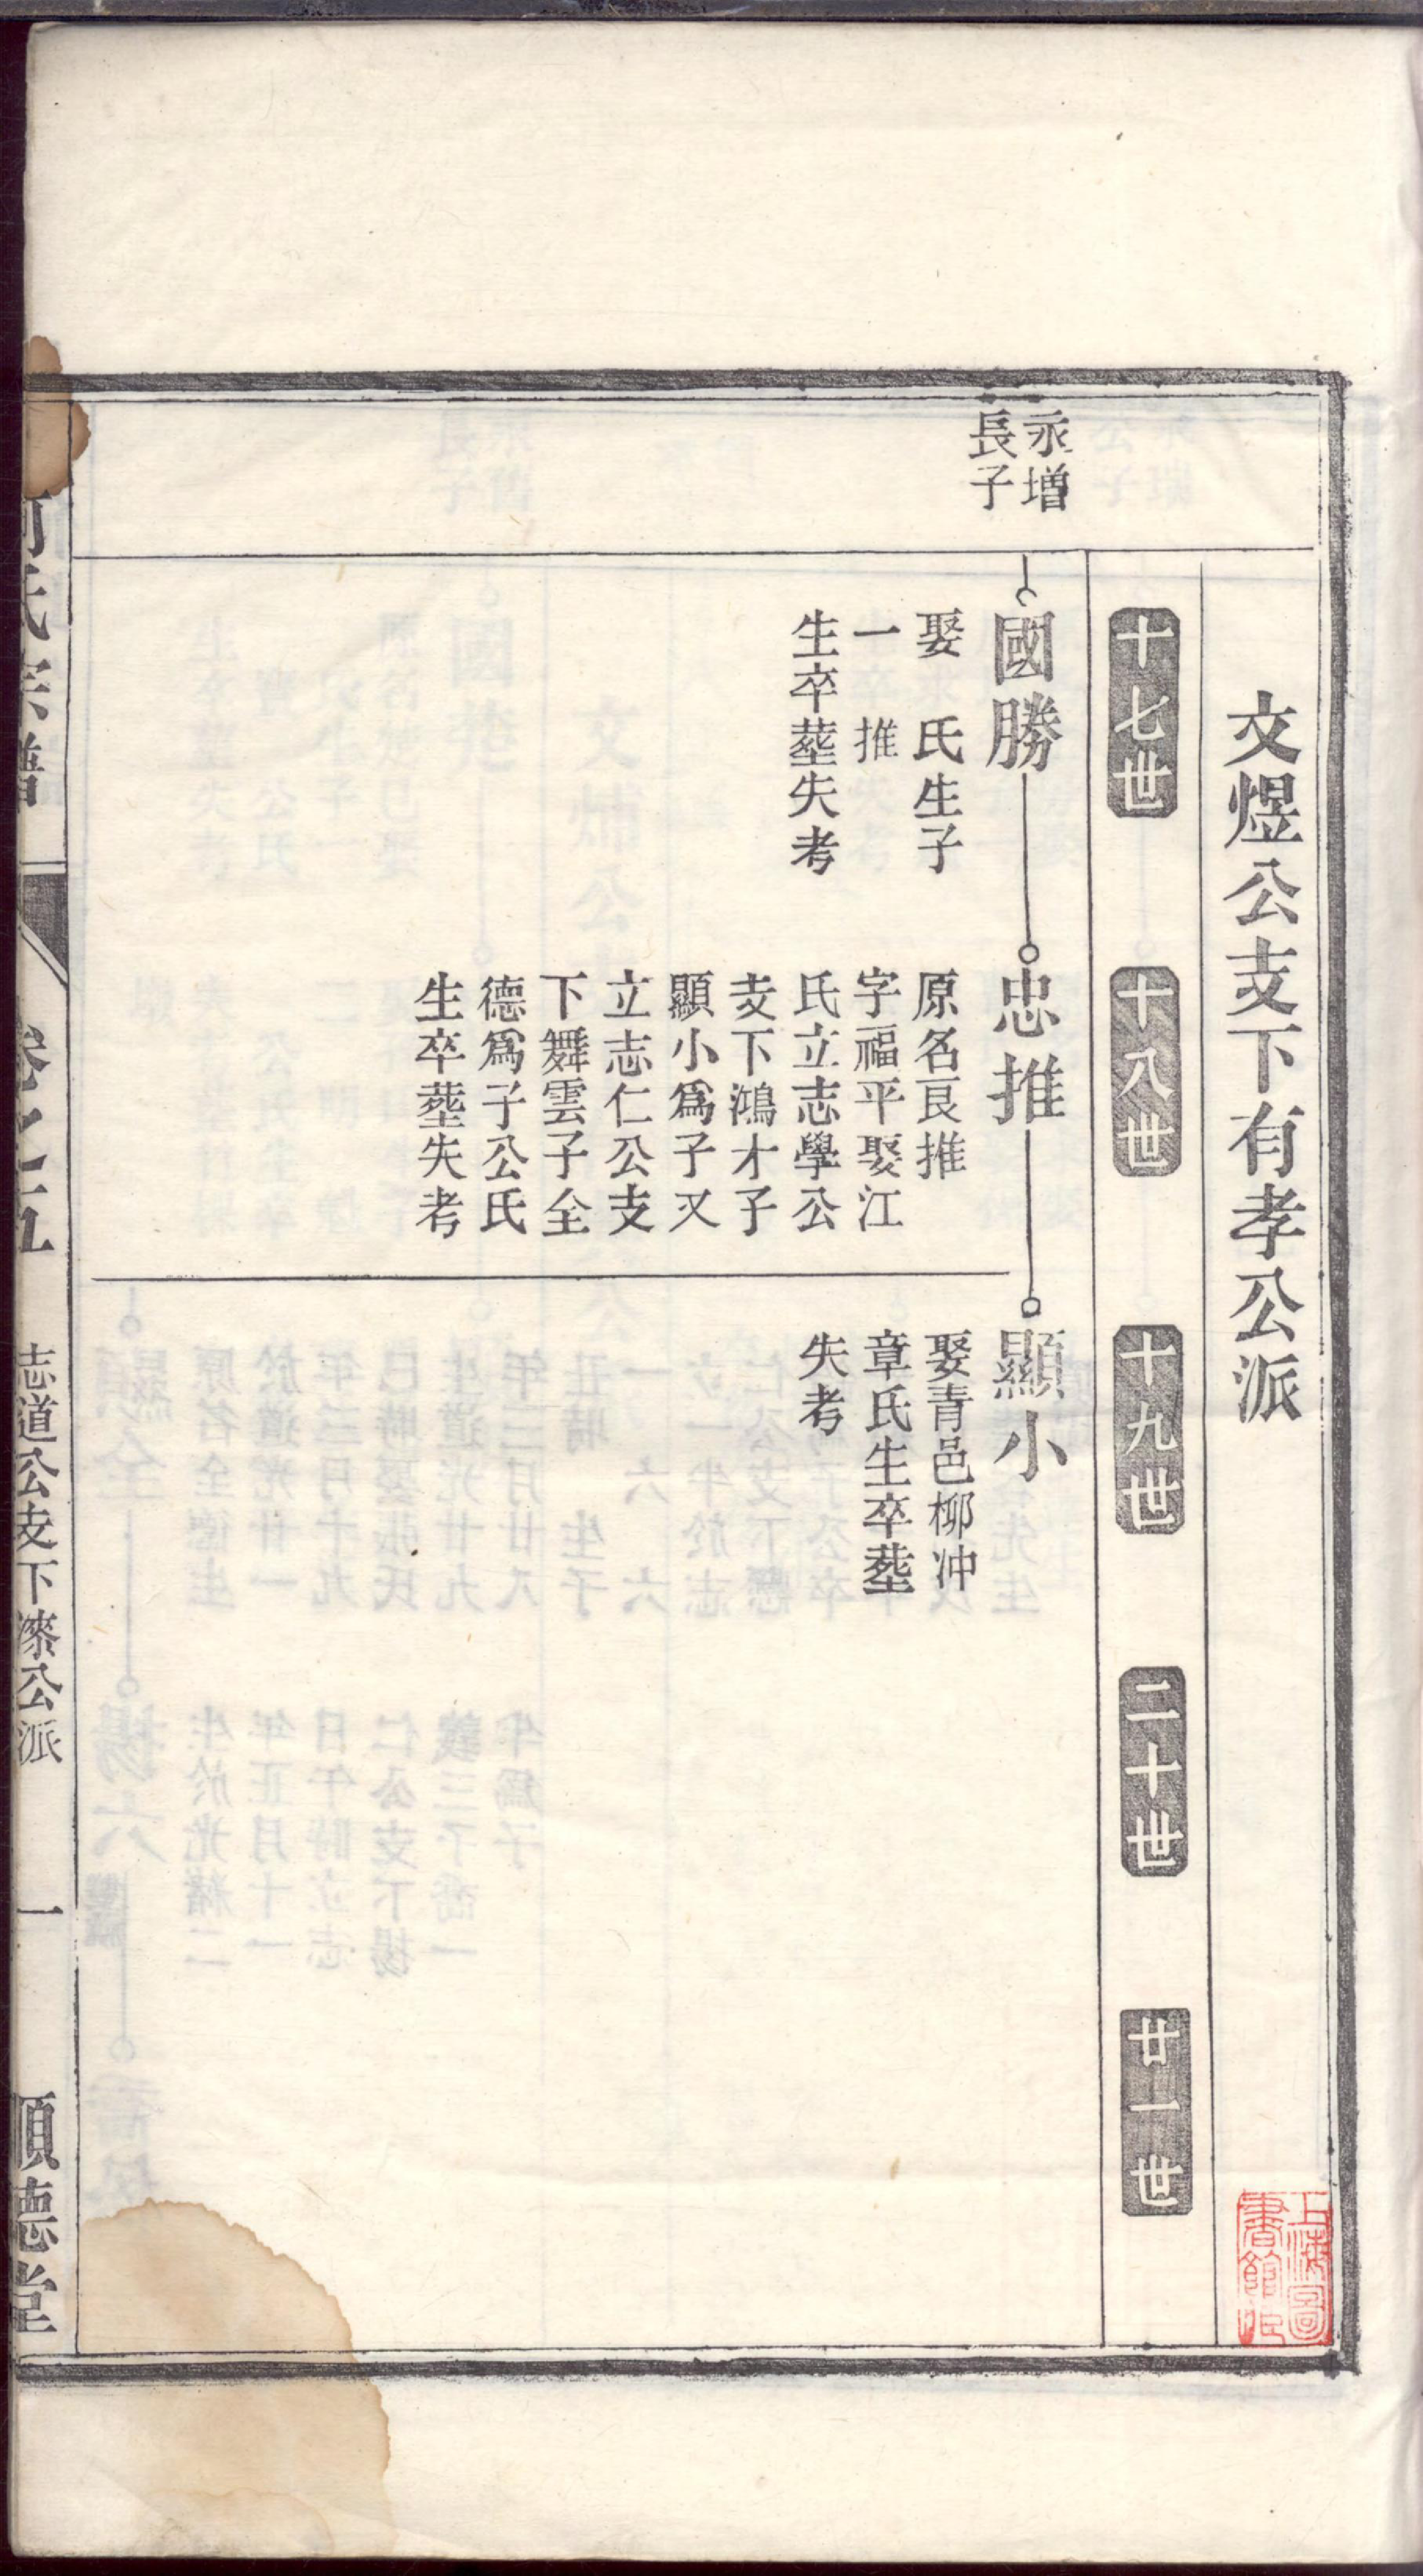 文煜公支下有孝公派
十七世
十八世
十九世
二十世
廿一世
永增
長子
國勝
娶 氏生子
一 推
生卒塟失考
忠推
原名艮推
字福平娶江
氏立志學公
支下鴻才子
顯小爲子又
立志仁公支
下舞雲子全
德爲子公氏
生卒塟失考
顯小
娶青邑柳冲
章氏生卒塟
失考
氏宗譜
卷之五
志道公支下滌公派
一
順德堂
上海圖
書館